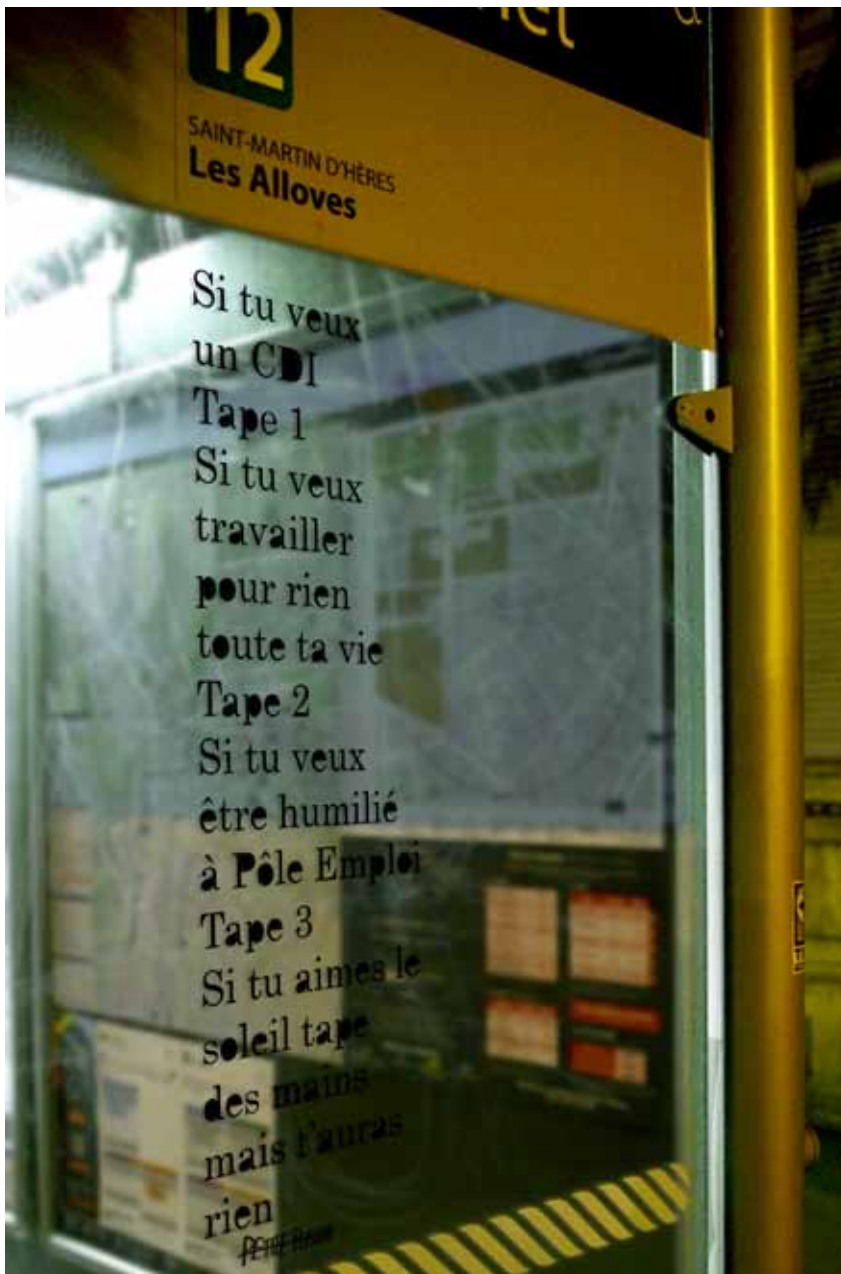 12
SAINT-MARTIN D'HÈRES
Les Alloves
Si tu veux
un CDI
Tape 1
Si tu veux
travailler
pour rien
toute ta vie
Tape 2
Si tu veux
être humilié
à Pôle Emploi
Tape 3
Si tu aimes le
soleil tape
des mains
mais t'auras
rien